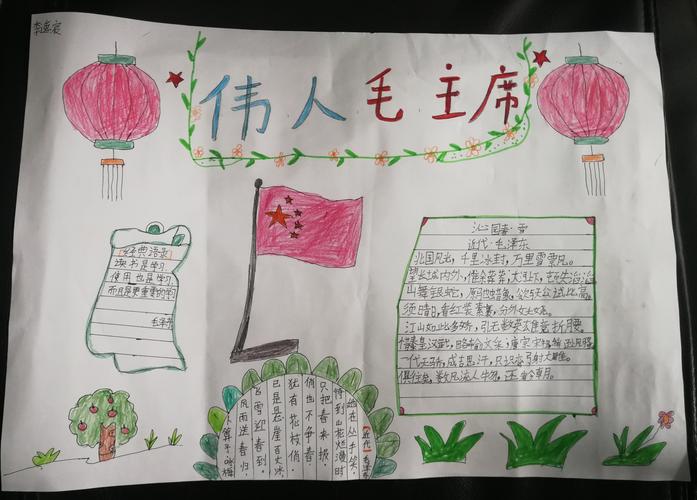 伟人毛主席
经典语录
读书是学习
使用也是学习,
而且是更重要的学
毛泽东
沁园春·雪
近代·毛泽东
北国风光,千里冰封,万里雪飘。
望长城内外,惟余莽莽,大河上下,顿失滔滔
山舞银蛇,原驰蜡象,欲与天公试比高。
须晴日,看红装素裹,分外妖娆。
江山如此多娇,引无数英雄竞折腰。
惜秦皇汉武,略输文采,唐宗宋祖
一代天骄,成吉思汗,只识弯弓射大雕。
俱往矣,数风流人物,还看今朝。
卜算子·咏梅
风雨送春归,
飞雪迎春到,
已是悬崖百丈冰
犹有花枝俏
俏也不争春
只把春来报,
待到山花烂漫时
她在丛中笑,
近代